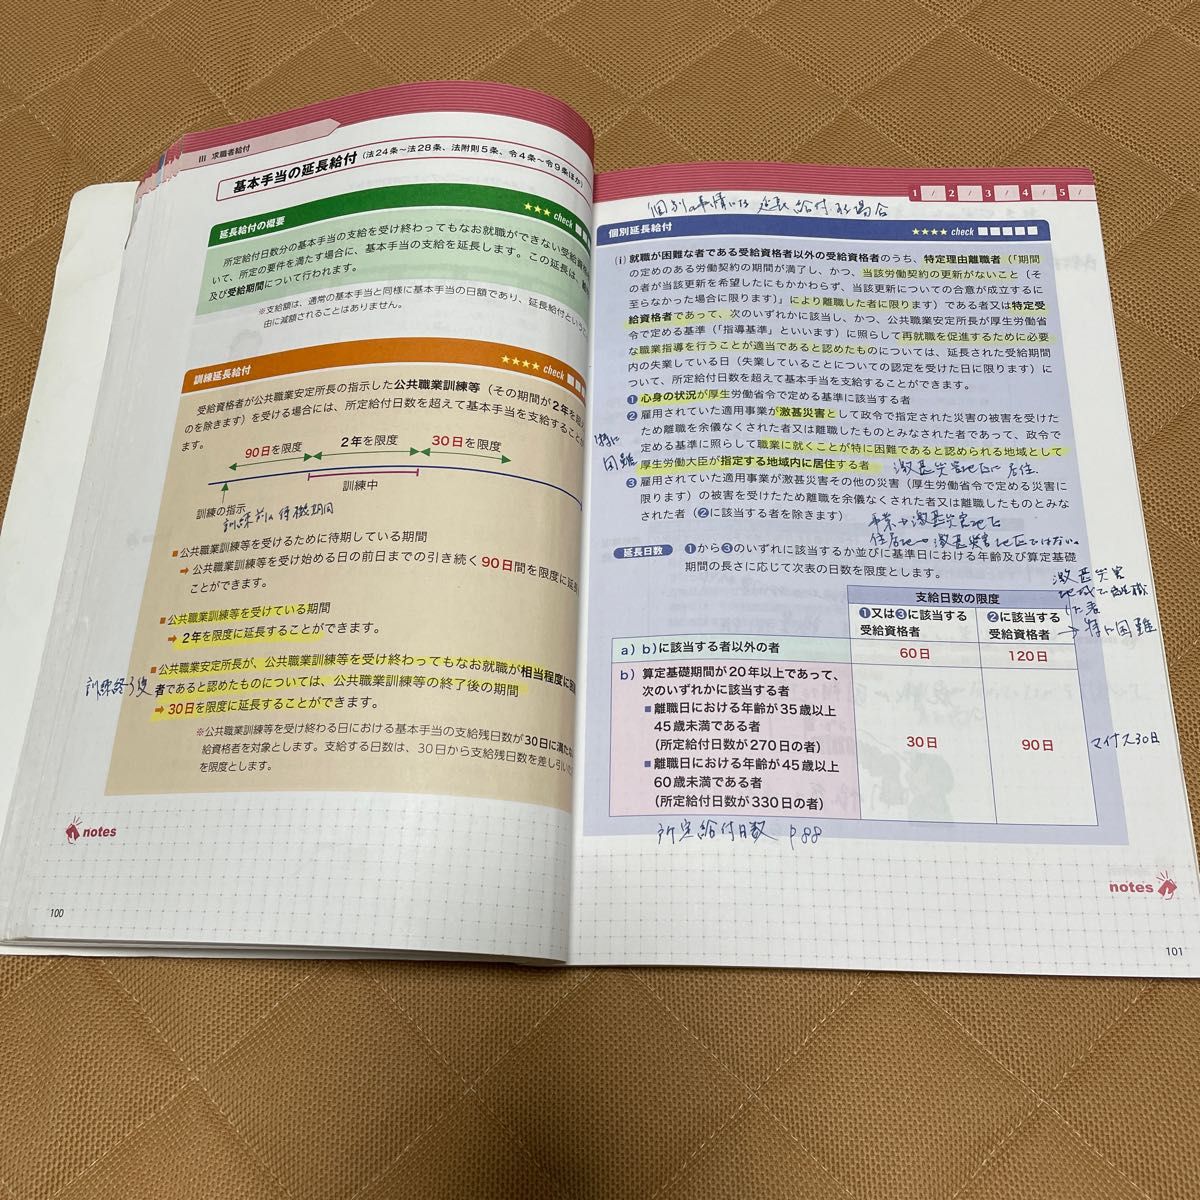 III 求職者給付
基本手当の延長給付（法24条～法28条、法附則5条、令4条～令9条ほか）
延長給付の概要
★★★ check
所定給付日数分の基本手当の支給を受け終わってもなお就職ができない受給資格
いて、所定の要件を満たす場合に、基本手当の支給を延長します。この延長は、
及び受給期間について行われます。
※支給額は、通常の基本手当と同様に基本手当の日額であり、延長給付という
由に減額されることはありません。
訓練延長給付
★★★★ check
受給資格者が公共職業安定所長の指示した公共職業訓練等（その期間が2年を超
のを除きます）を受ける場合には、所定給付日数を超えて基本手当を支給すること
ます。
90日を限度
2年を限度
30日を限度
訓練中
訓練の指示
訓練前の待機期間
■公共職業訓練等を受けるために待期している期間
➡公共職業訓練等を受け始める日の前日までの引き続く90日間を限度に延長
ことができます。
■公共職業訓練等を受けている期間
➡2年を限度に延長することができます。
■公共職業安定所長が、公共職業訓練等を受け終わってもなお就職が相当程度に
訓練終了後
者であると認めたものについては、公共職業訓練等の終了後の期間
➡30日を限度に延長することができます。
※公共職業訓練等を受け終わる日における基本手当の支給残日数が30日に満たな
給資格者を対象とします。支給する日数は、30日から支給残日数を差し引いた
を限度とします。
notes
100
1 / 2 / 3 / 4 / 5 /
個別の事情による延長給付の場合
個別延長給付
★★★★ check
(i) 就職が困難な者である受給資格者以外の受給資格者のうち、特定理由離職者（「期間
の定めのある労働契約の期間が満了し、かつ、当該労働契約の更新がないこと（そ
の者が当該更新を希望したにもかかわらず、当該更新についての合意が成立するに
至らなかった場合に限ります）」により離職した者に限ります）である者又は特定受
給資格者であって、次のいずれかに該当し、かつ、公共職業安定所長が厚生労働省
令で定める基準（「指導基準」といいます）に照らして再就職を促進するために必要
な職業指導を行うことが適当であると認めたものについては、延長された受給期間
内の失業している日（失業していることについての認定を受けた日に限ります）に
ついて、所定給付日数を超えて基本手当を支給することができます。
❶心身の状況が厚生労働省令で定める基準に該当する者
❷雇用されていた適用事業が激甚災害として政令で指定された災害の被害を受けた
ため離職を余儀なくされた者又は離職したものとみなされた者であって、政令で
定める基準に照らして職業に就くことが特に困難であると認められる地域として
特に
困難
厚生労働大臣が指定する地域内に居住する者
激甚災害地区に居住.
❸雇用されていた適用事業が激甚災害その他の災害（厚生労働省令で定める災害に
限ります）の被害を受けたため離職を余儀なくされた者又は離職したものとみな
された者（❷に該当する者を除きます）
事業は激甚災害地区
住居地は激甚災害地区ではない。
延長日数
❶から❸のいずれに該当するか並びに基準日における年齢及び算定基礎
期間の長さに応じて次表の日数を限度とします。
激甚災害
地域で離職
した者
→ 特に困難
支給日数の限度
❶又は❸に該当する
受給資格者
❷に該当する
受給資格者
a）b）に該当する者以外の者
60日
120日
b）算定基礎期間が20年以上であって、
次のいずれかに該当する者
■離職日における年齢が35歳以上
45歳未満である者
（所定給付日数が270日の者）
■離職日における年齢が45歳以上
60歳未満である者
（所定給付日数が330日の者）
30日
90日
マイナス30日
所定給付日数 P88
notes
101